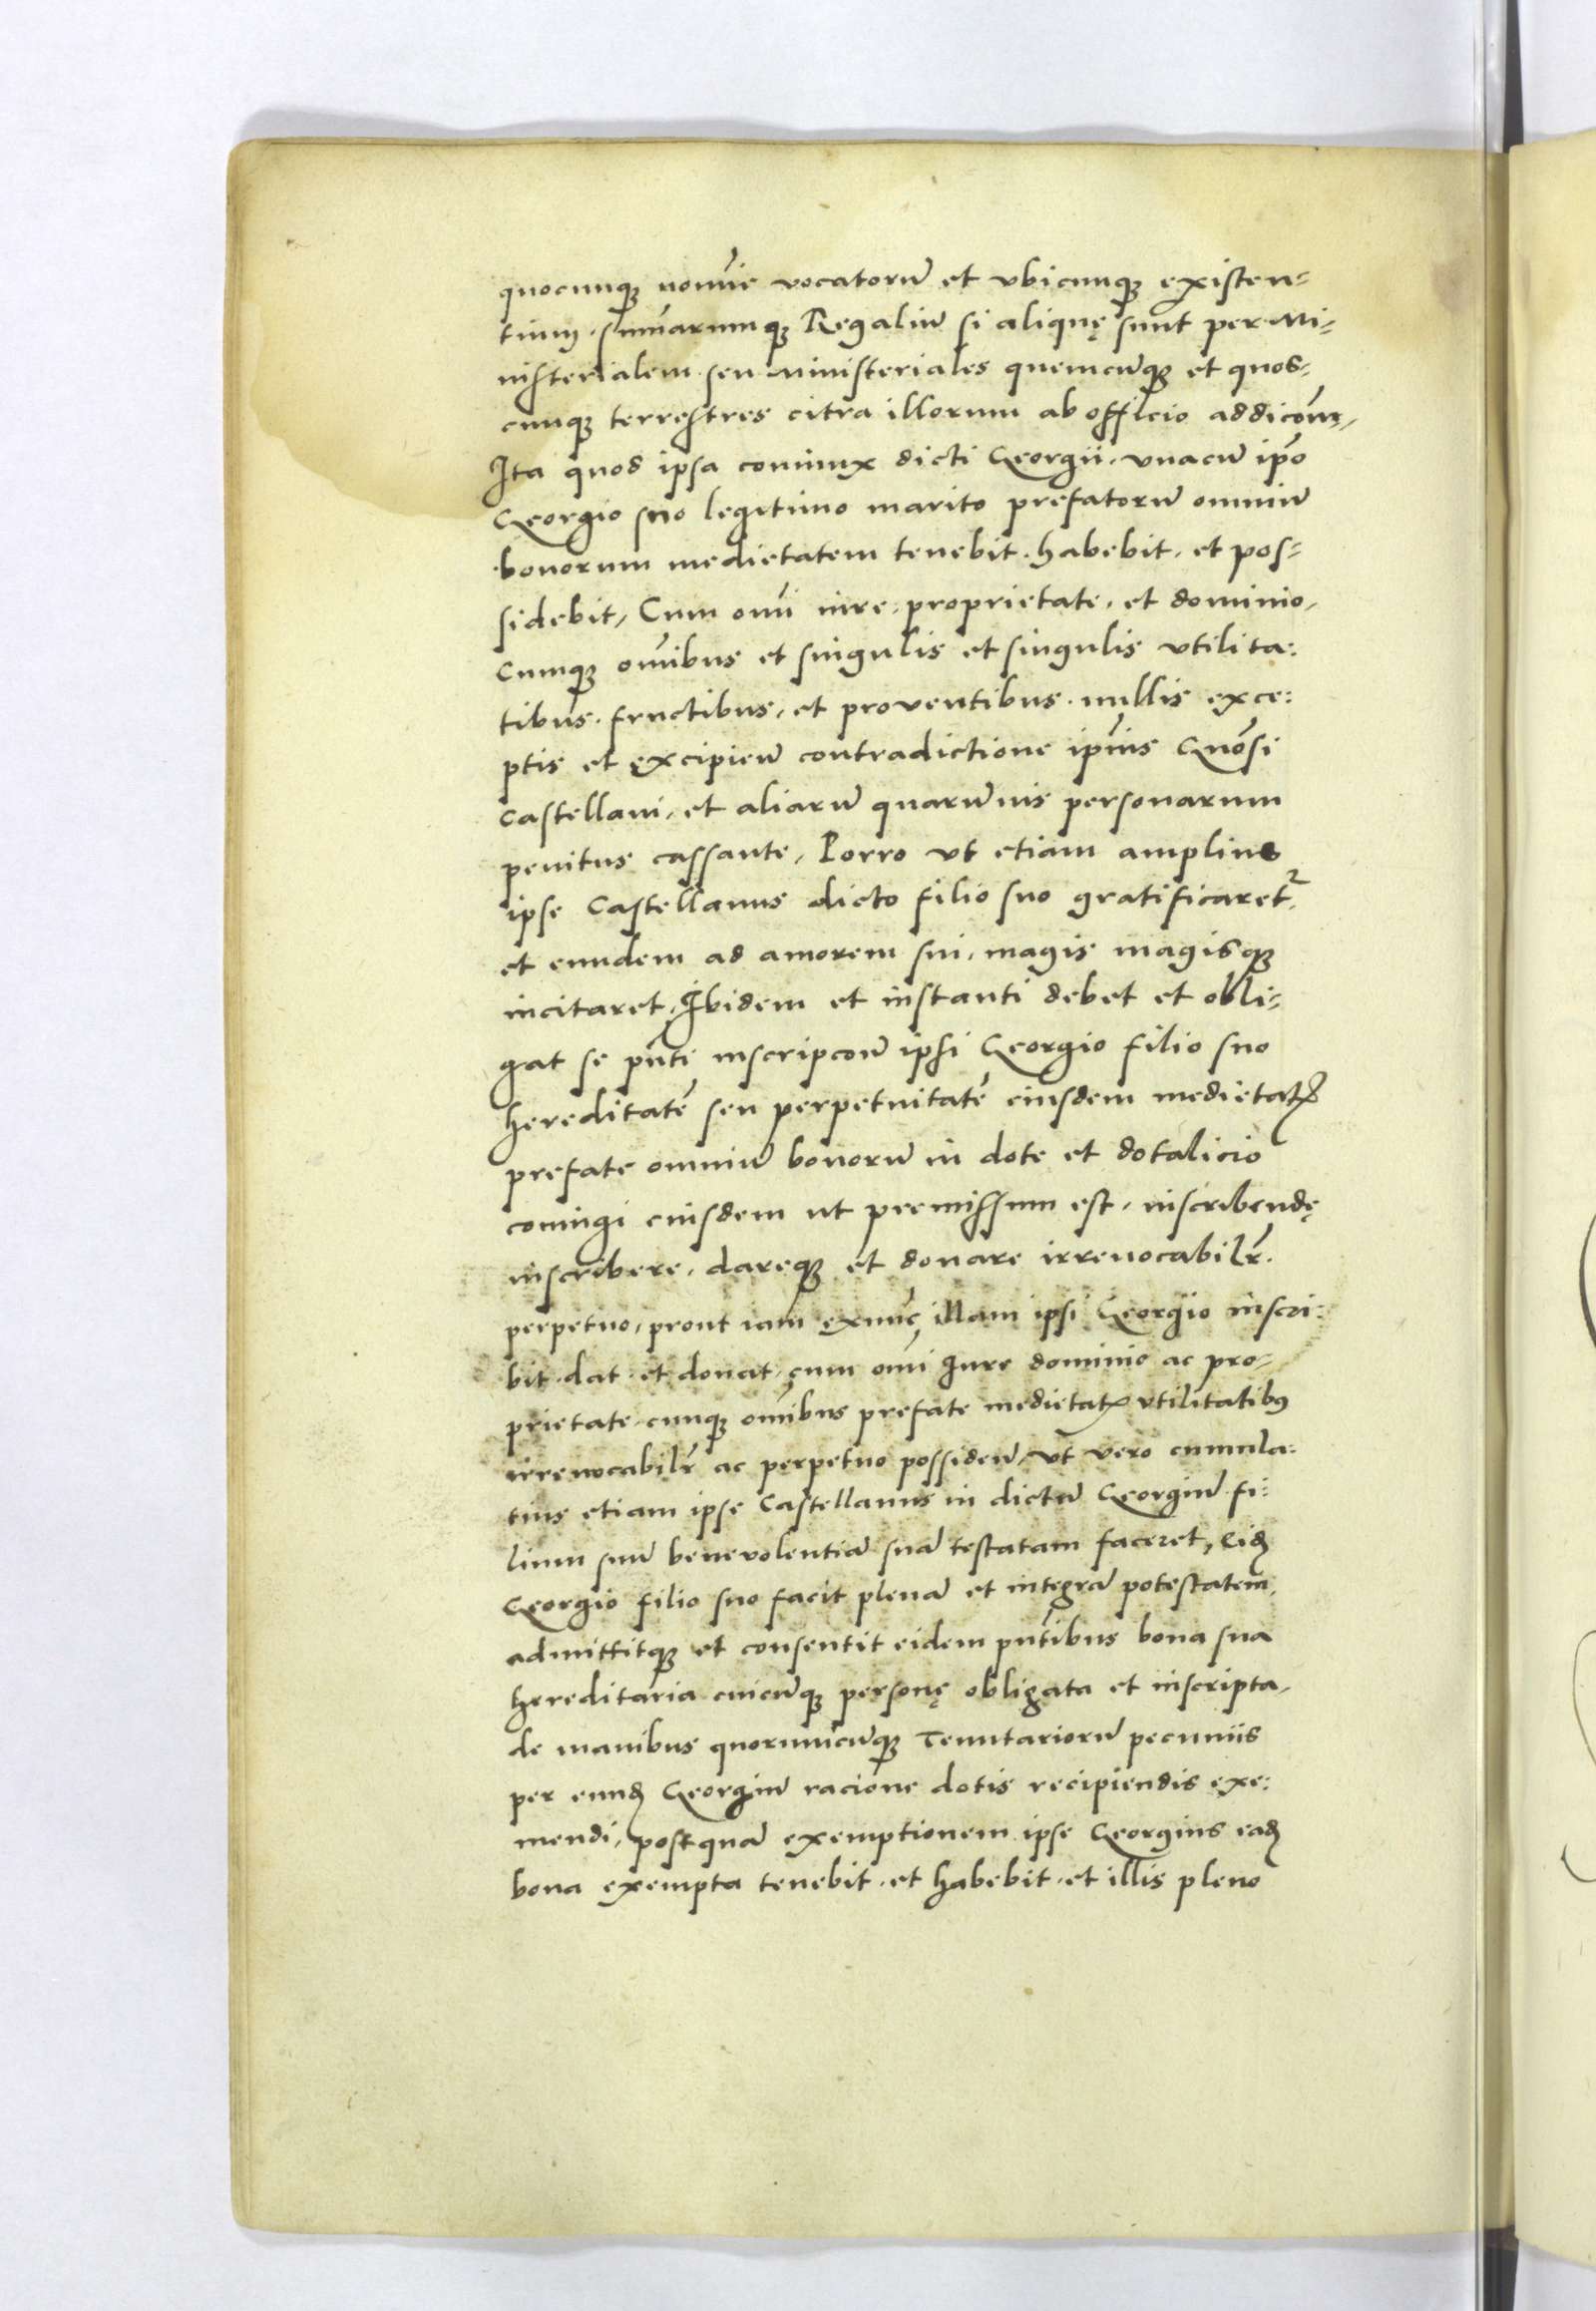 quocunqꝫ nom̃ie vocatorũ et vbicunqꝫ existen=
tium. sum̃arumqꝫ Regaliũ si aliquę sunt per Mi=
nisterialem seu Ministeriales quemcũqꝫ et quos=
cunqꝫ terrestres citra illorum ab officio addicõm,
Ita quod ipsa coniunx dicti Georgii, vnacũ ip̃o
Georgio suo legitimo marito prefatorũ omniũ
bonorum medietatem tenebit. habebit, et pos=
sidebit, Cum om̃i iure, proprietate, et dominio,
Cumqꝫ om̃ibus et singulis et singulis vtilita:
tibus. fructibus, et proventibus. nullis exce:
ptis et excipien̄ contradictione ip̃ius Gnõsi
Castellani, et aliarũ quarũvis personarum
penitus cassante, Porro vt etiam amplius
ipse Castellanus dicto filio suo gratificaretꝛ
et eundem ad amorem sui, magis magisqꝫ
incitaret, Ibidem et instanti debet et obli=
gat se pñti inscripcoñ ipsi Georgio filio suo
hereditatẽ seu perpetuitatẽ eiusdem medietatꝭ
prefate omniũ bonorũ in dote et dotalicio
coniugi eiusdem ut premissum est, inscribendę
inscribere, dareqꝫ et donare irreuocabilr̃.
perpetuo, prout iam exnũc illam ipsi Georgio inscri:
bit. dat. et donat. cum om̃i Iure dominio ac pro=
prietate. cunqꝫ om̃ibus prefate medietatꝭ vtilitatibꝰ
irreuocabilr̃ ac perpetuo possiden̄, vt vero cumula:
tius etiam ipse Castellanus in dictũ Georgiũ fi:
lium suũ benevolentiã suã testatam faceret, Eidꝫ
Georgio filio suo facit plenã et integrã potestatem,
admittitqꝫ et consentit eidem pñtibus bona sua
hereditaria cuicũqꝫ personę obligata et inscripta,
de manibus quorumcũqꝫ Tenutariorũ pecuniis
per eundꝫ Georgiũ racione dotis recipiendis exe:
mendi, postquã exemptionem ipse Georgius eadꝫ
bona exempta tenebit. et habebit. et illis pleno